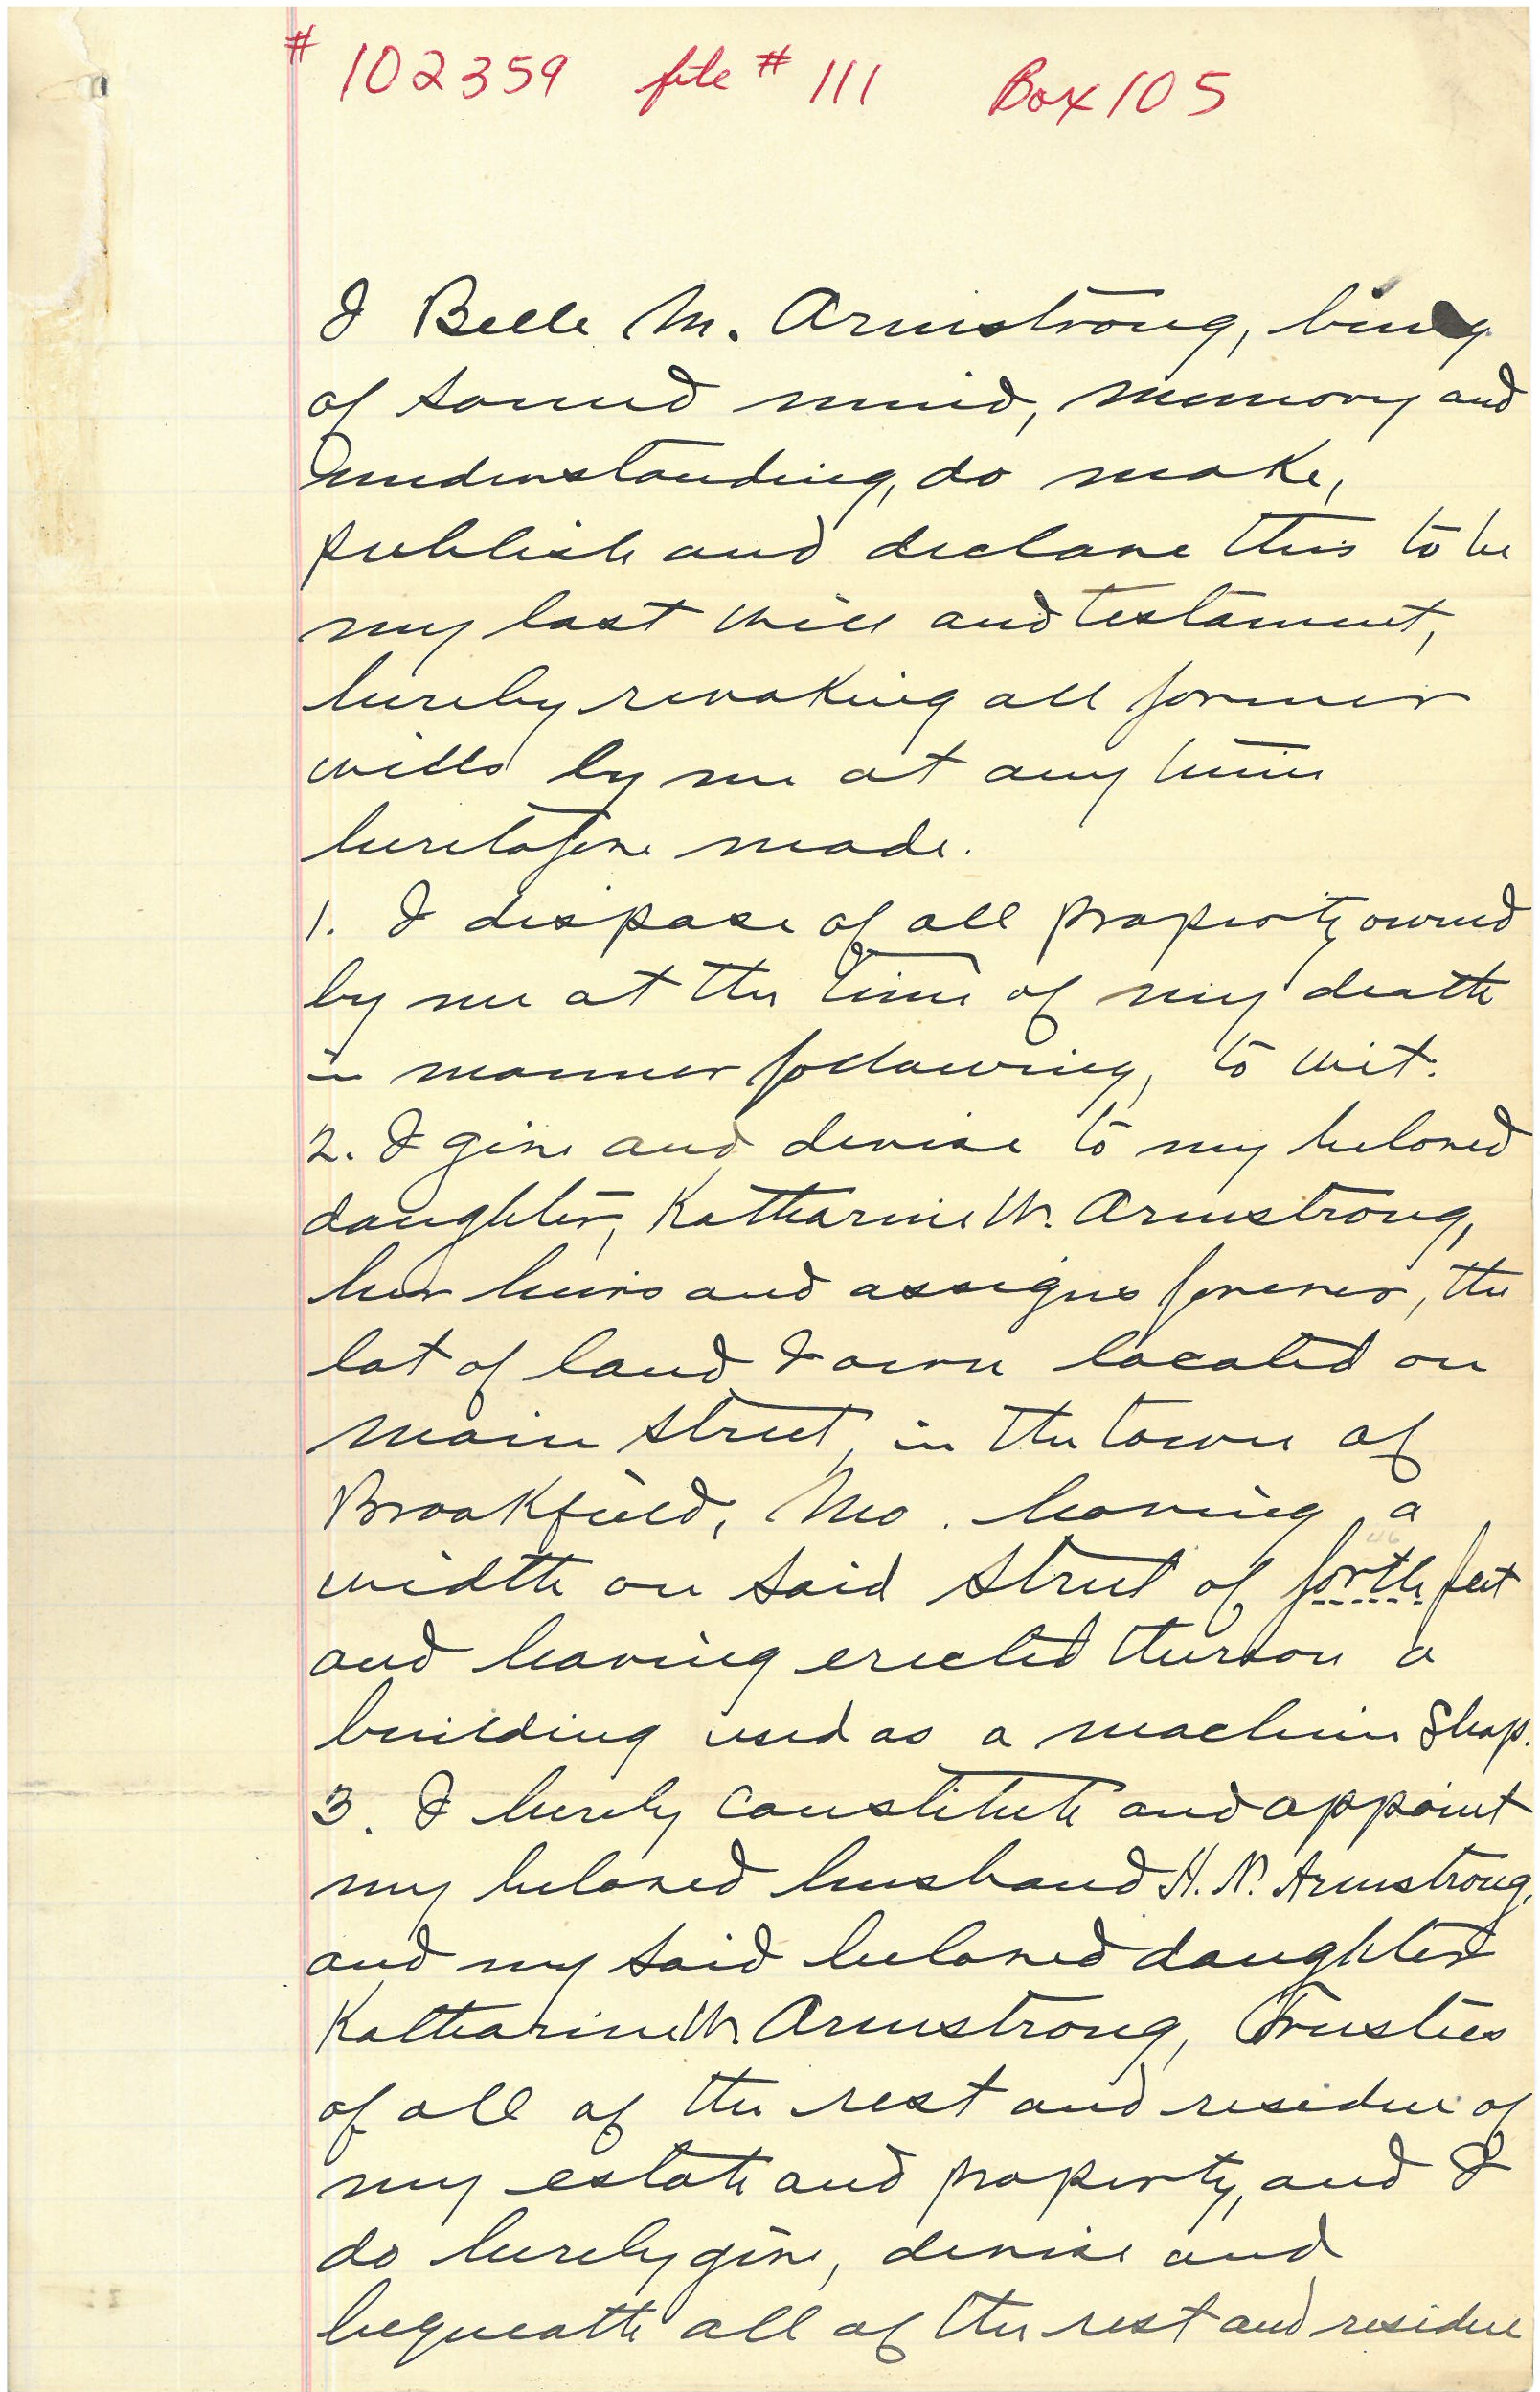 # 102359 file # 111 Box 105
I Belle M. Armstrong, being
of sound mind, memory and
understanding, do make,
publish and declare this to be
my last will and testament,
hereby revoking all former
wills by me at any time
heretofore made.
1. I dispose of all property owned
by me at the time of my death
in manner following, to wit:
2. I give and devise to my beloved
daughter, Katharine W. Armstrong,
her heirs and assigns forever, the
lot of land I own located on
Main Street, in the town of
Brookfield, Mo. having a
46
width on said Street of forth feet
and having erected thereon a
building used as a machine Shop.
3. I hereby constitute and appoint
my beloved husband H. N. Armstrong,
and my said beloved daughter
Katharine W. Armstrong, Trustees
of all of the rest and residue of
my estate and property, and I
do hereby give, devise and
bequeath all of the rest and residue